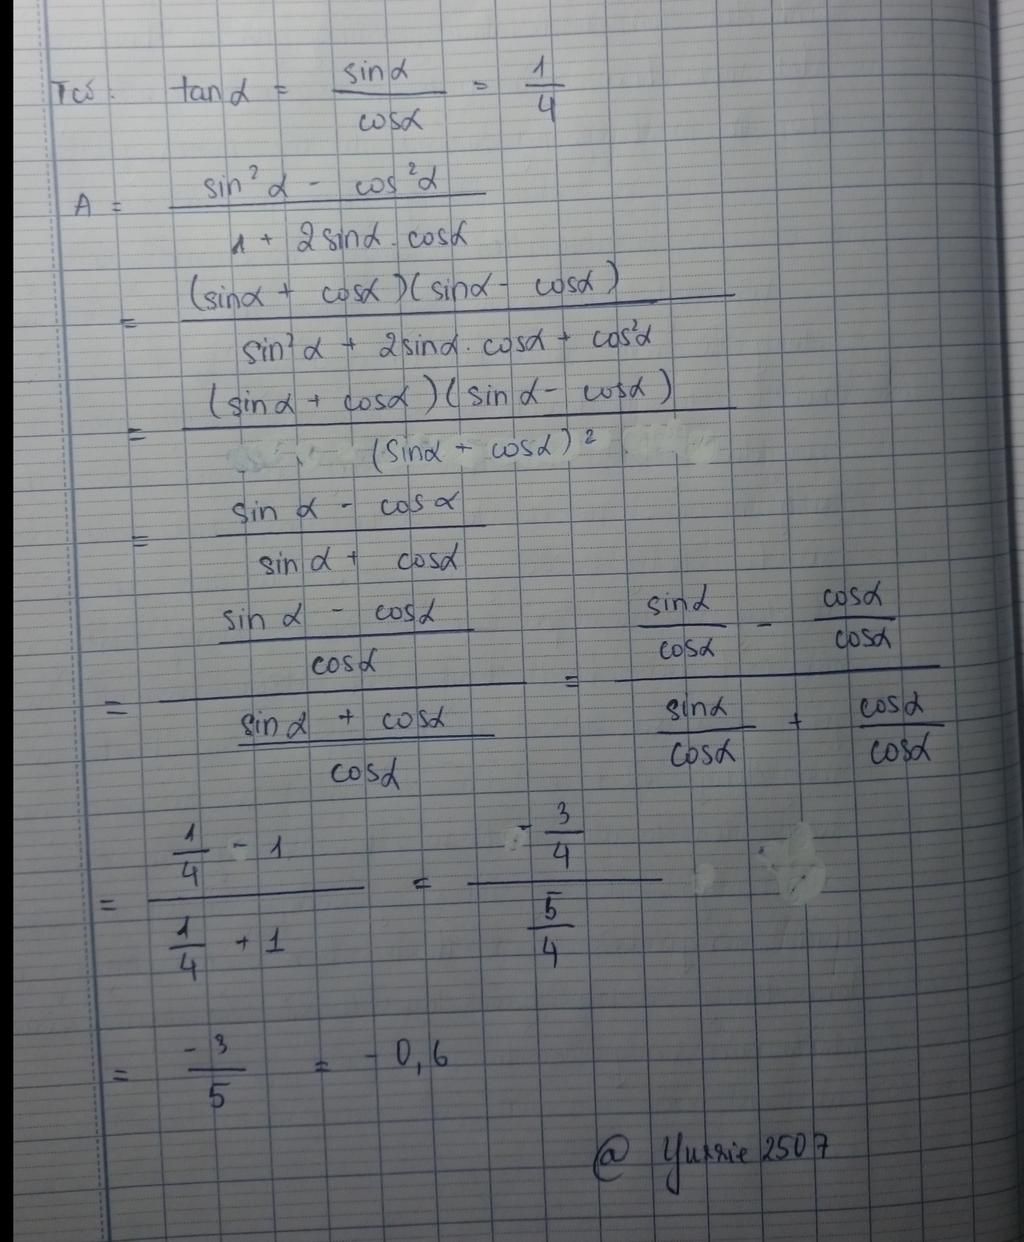 Tcó: tanα = sinα/cosα = 1/4
A = (sin²α - cos²α)/(1 + 2sinα.cosα)
= ((sinα + cosα)(sinα - cosα))/(sin²α + 2sinα.cosα + cos²α)
= ((sinα + cosα)(sinα - cosα))/((sinα + cosα)²)
= (sinα - cosα)/(sinα + cosα)
= ((sinα - cosα)/cosα)/((sinα + cosα)/cosα) = (sinα/cosα - cosα/cosα)/(sinα/cosα + cosα/cosα)
= (1/4 - 1)/(1/4 + 1) = (-3/4)/(5/4)
= -3/5 = -0,6
@ Yurrie 2507